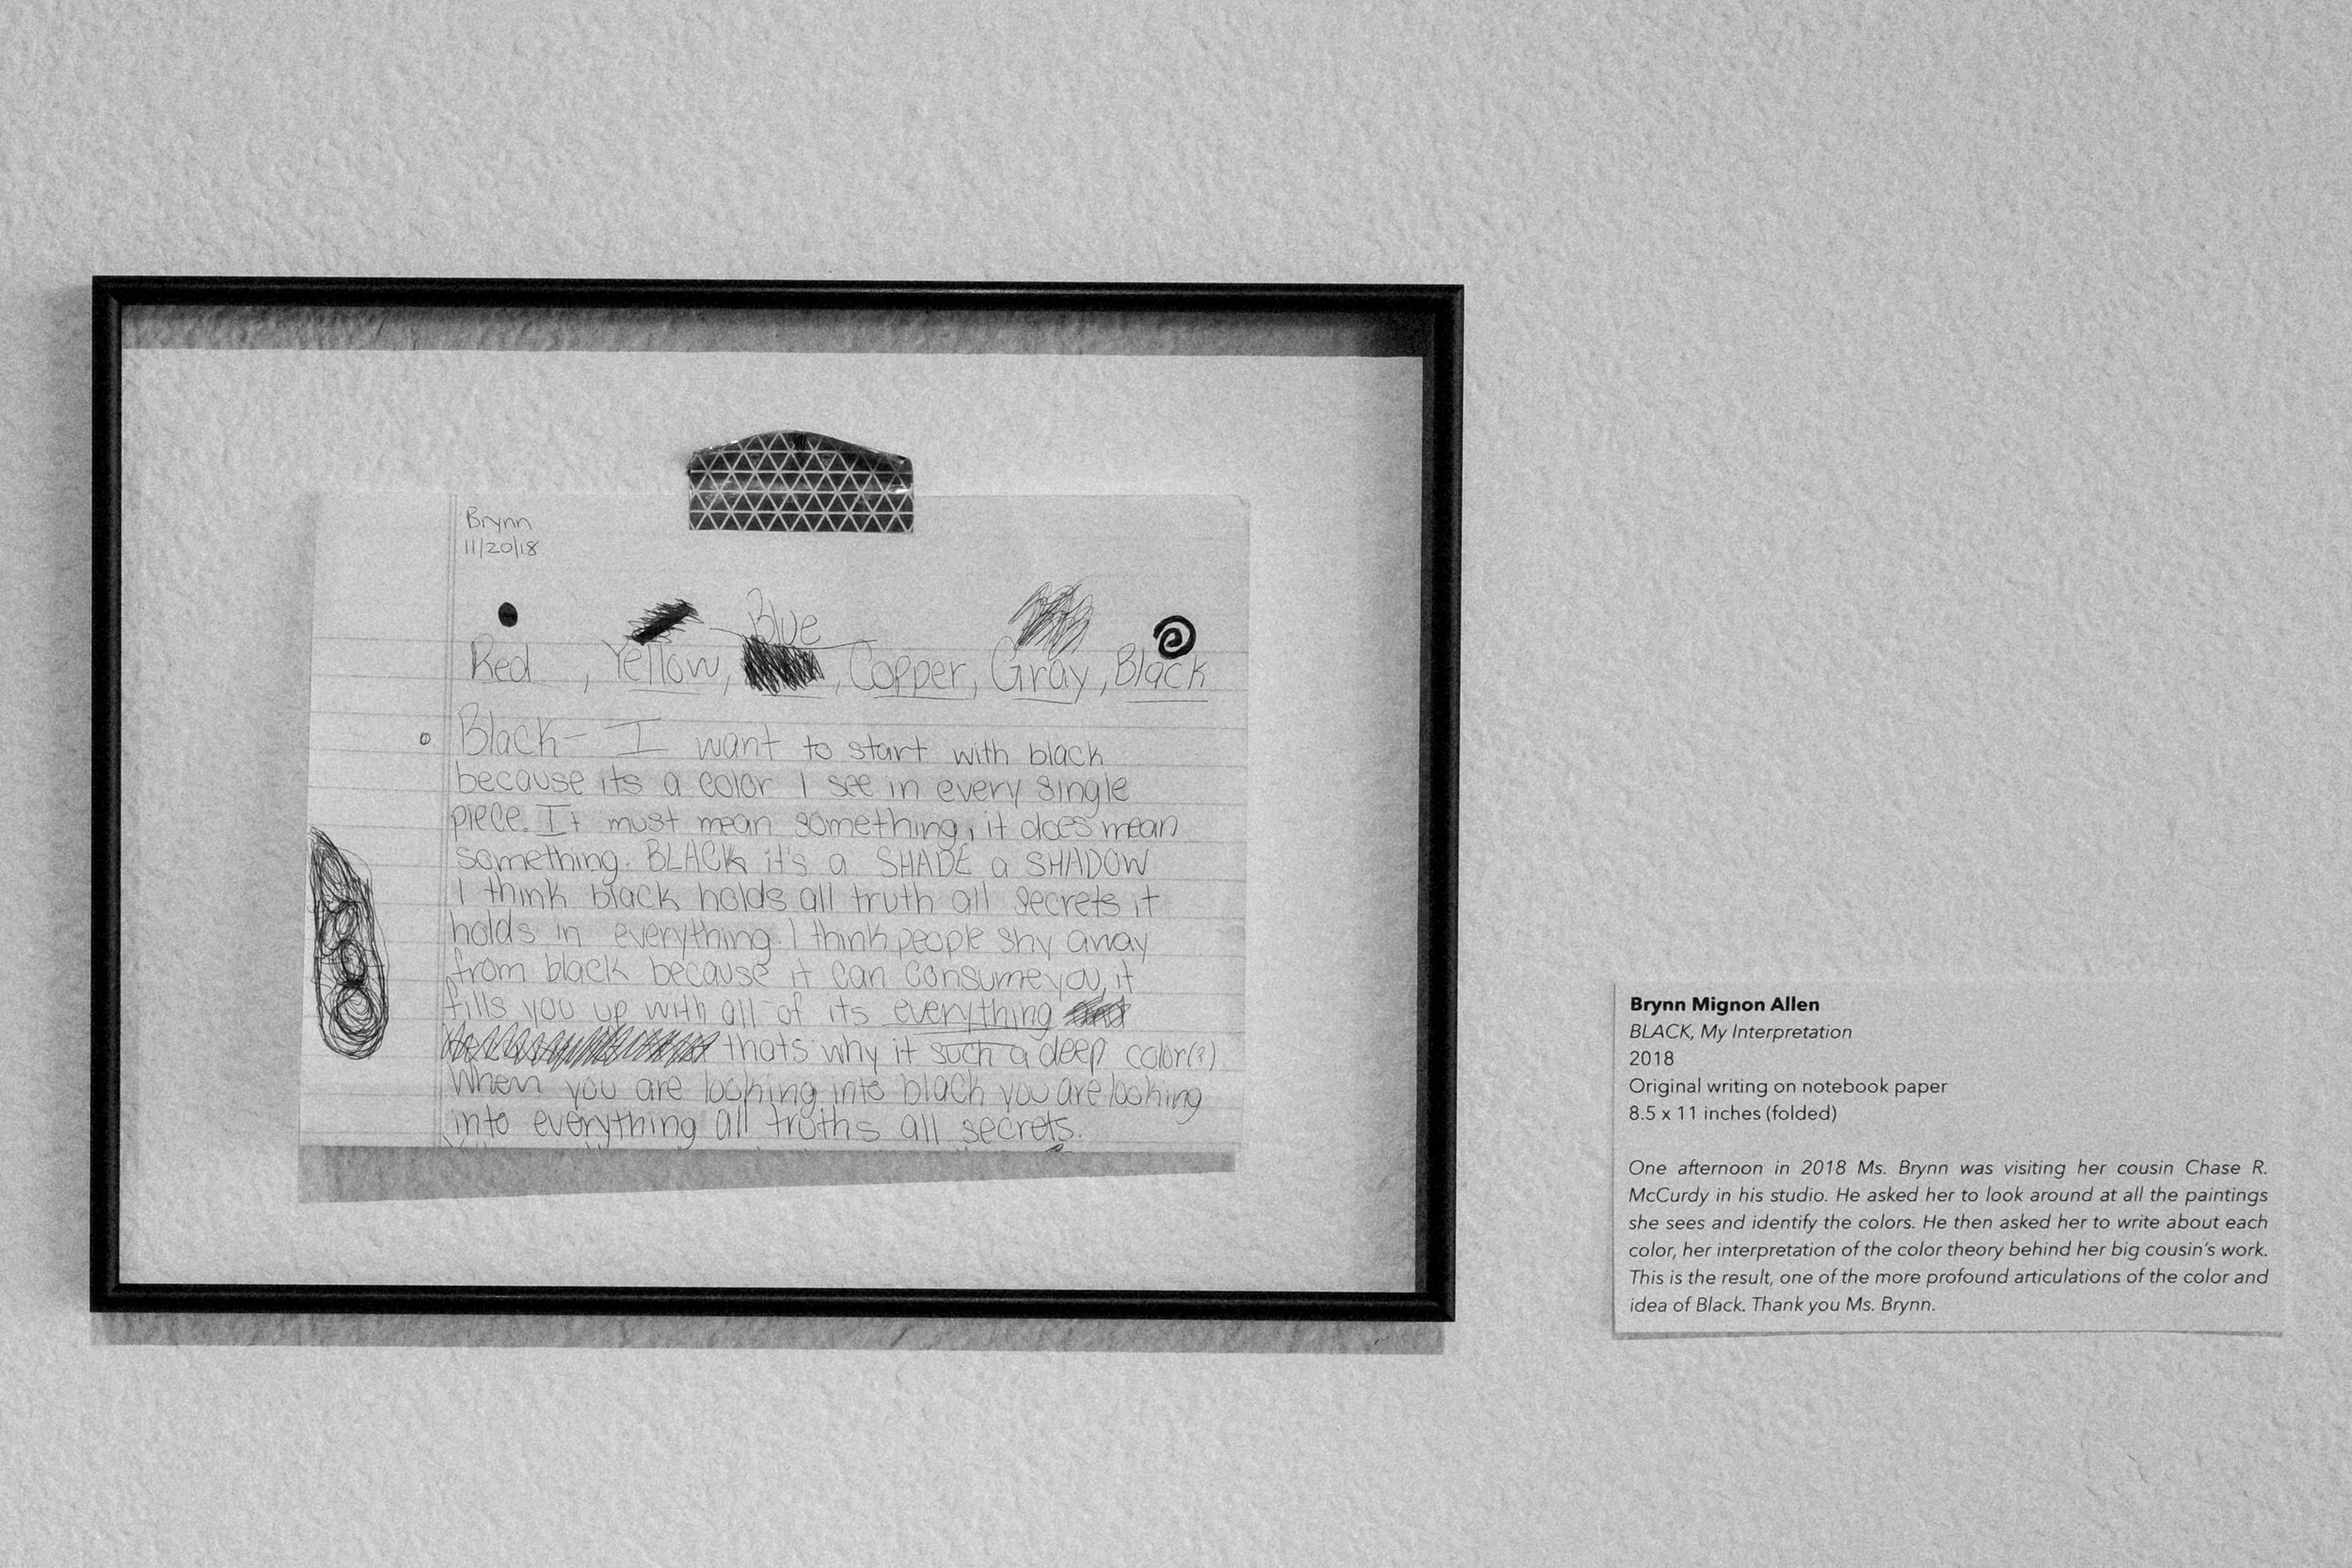 Brynn
11/20/18
Blue
Red , Yellow, , Copper, Gray, Black
Black- I want to start with black
because its a color I see in every single
piece. It must mean something, it does mean
something. BLACK it's a SHADE a SHADOW
I think black holds all truth all secrets it
holds in everything. I think people shy away
from black because it can consume you, it
fills you up with all of its everything
thats why it such a deep color(?)
When you are looking into black you are looking
into everything all truths all secrets.
Brynn Mignon Allen
BLACK, My Interpretation
2018
Original writing on notebook paper
8.5 x 11 inches (folded)
One afternoon in 2018 Ms. Brynn was visiting her cousin Chase R.
McCurdy in his studio. He asked her to look around at all the paintings
she sees and identify the colors. He then asked her to write about each
color, her interpretation of the color theory behind her big cousin's work.
This is the result, one of the more profound articulations of the color and
idea of Black. Thank you Ms. Brynn.